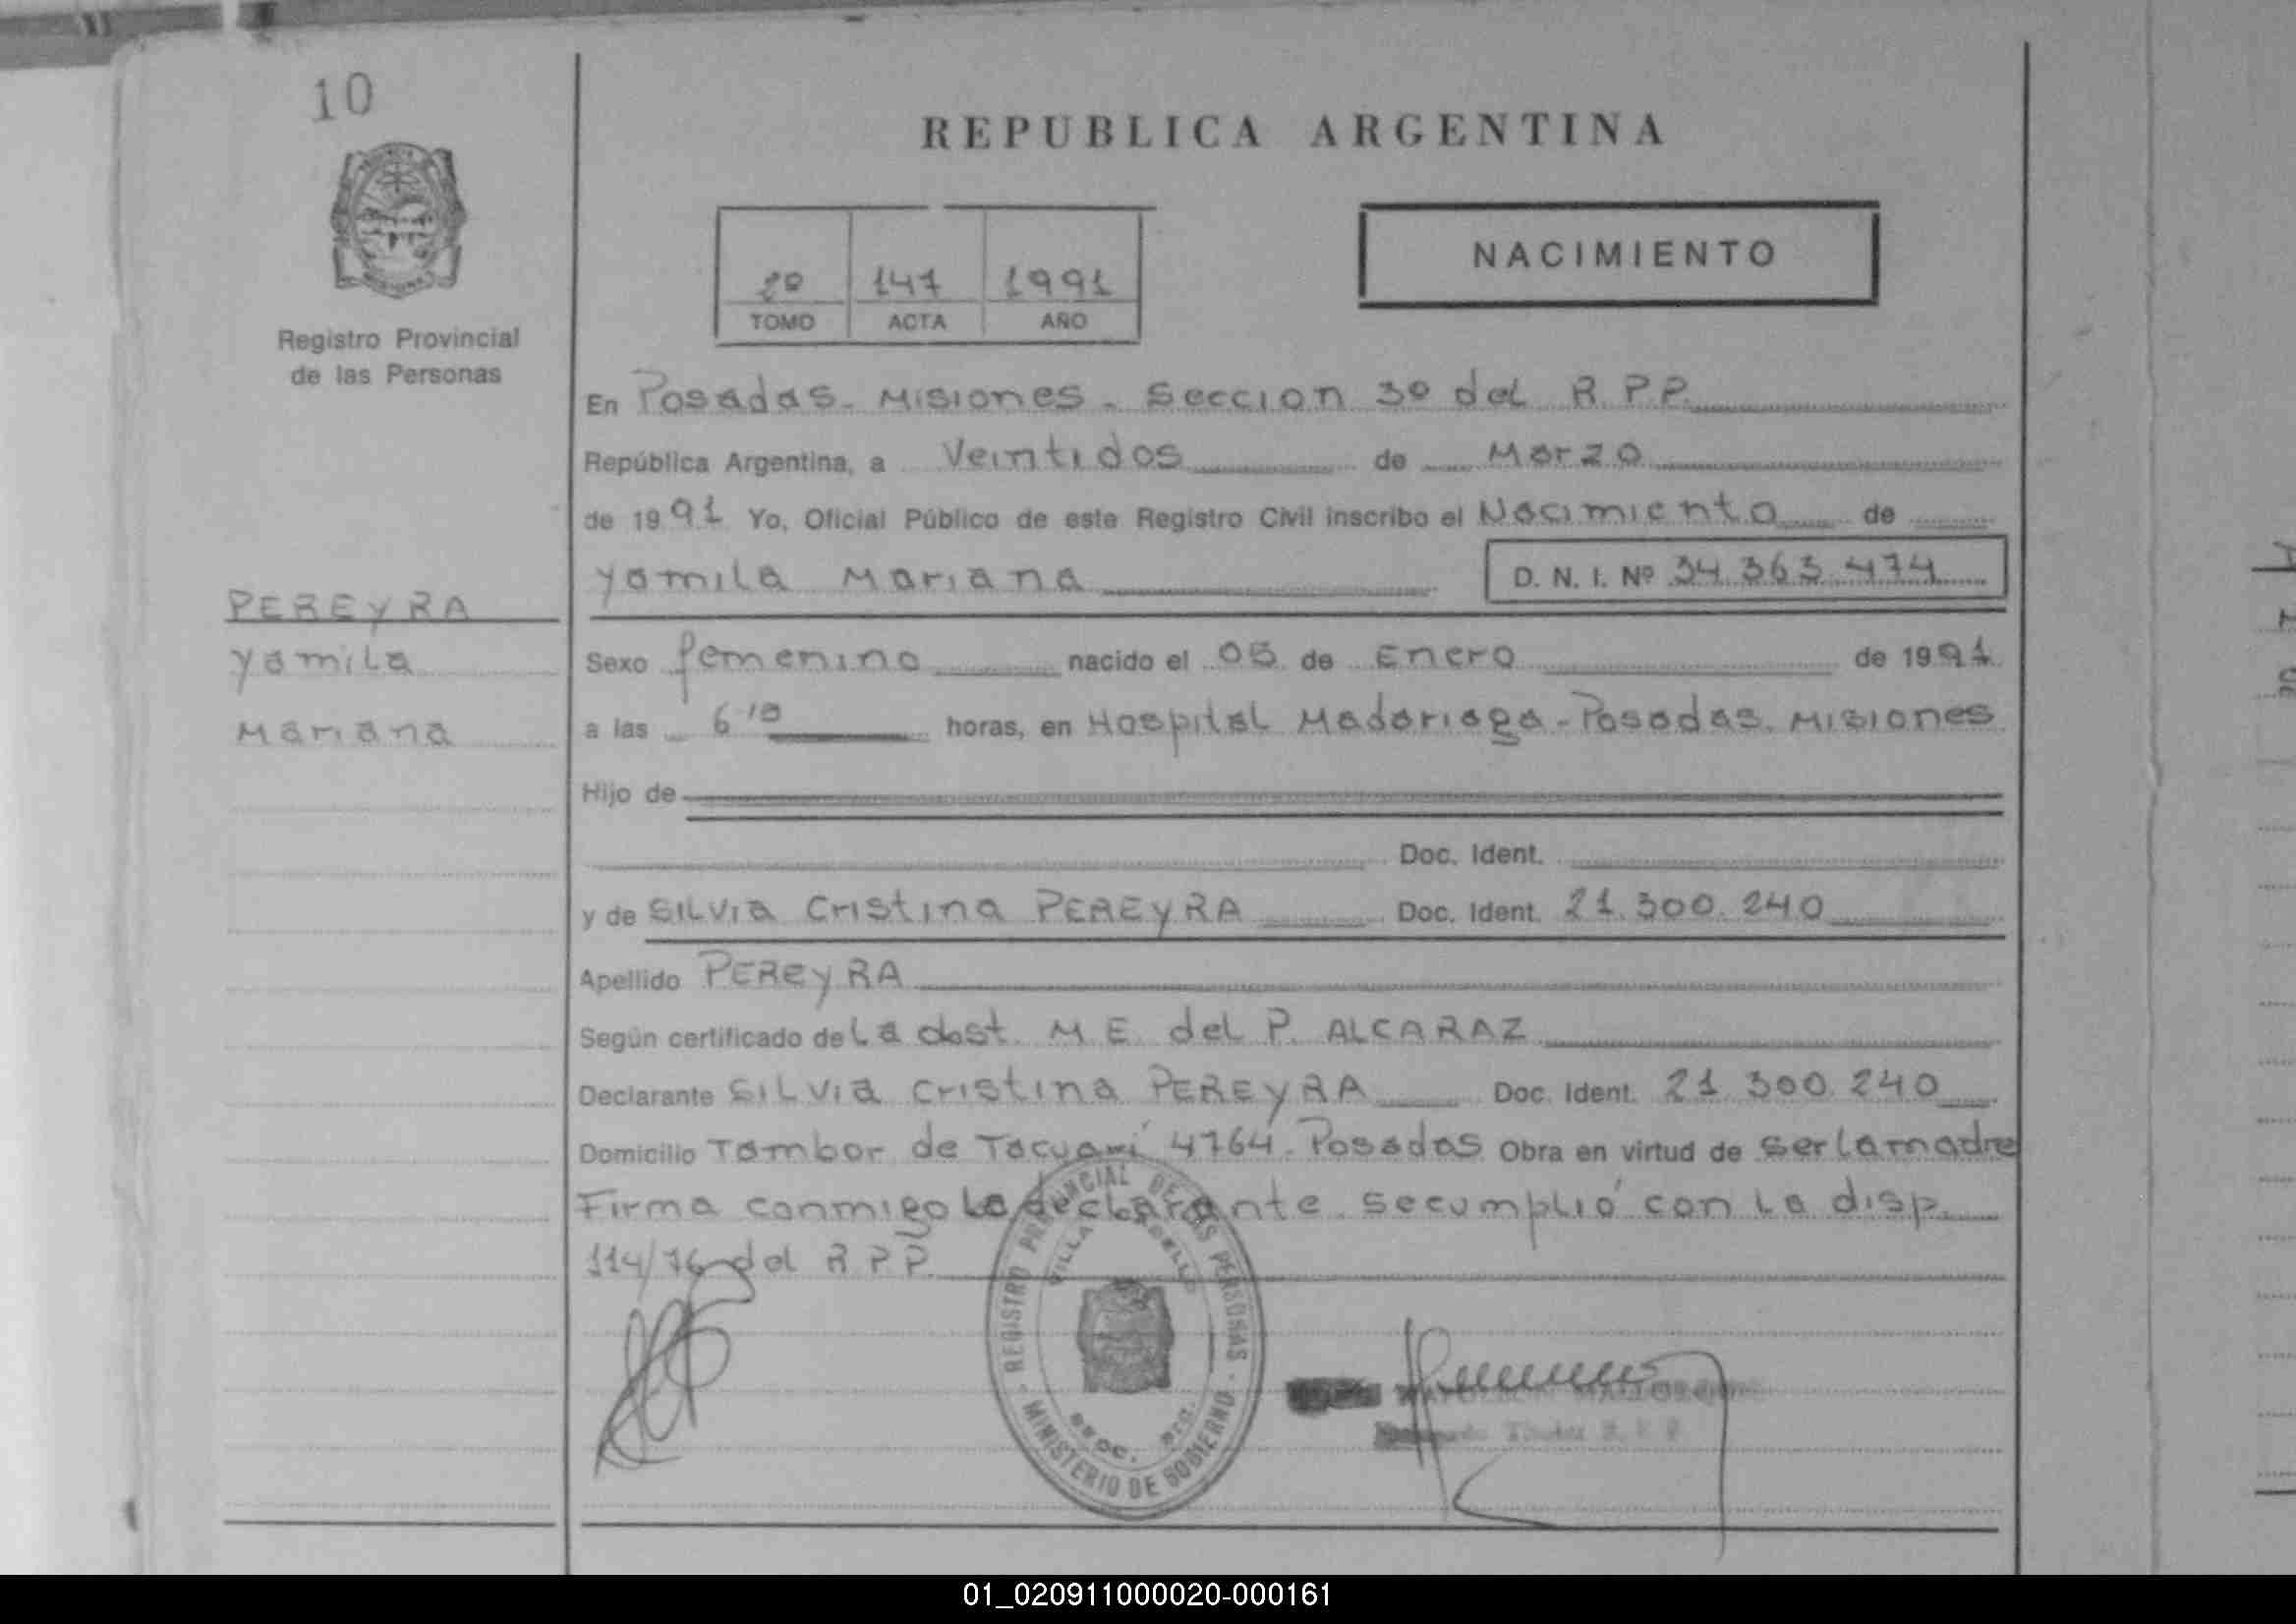 10
REPUBLICA ARGENTINA
2º 147 1991
TOMO ACTA AÑO
NACIMIENTO
Registro Provincial
de las Personas
En Posadas - Misiones - Seccion 3º del R.P.P.
República Argentina, a Veintidos de Marzo
de 1991 Yo, Oficial Público de este Registro Civil inscribo el Nacimiento de
Yamila Mariana D. N. I. Nº 34.363.474
PEREYRA
Yamila
Mariana
Sexo femenino nacido el 05 de Enero de 1991
a las 6 10 horas, en Hospital Madariaga - Posadas. Misiones
Hijo de
Doc. Ident.
y de Silvia Cristina PEREYRA Doc. Ident. 21.300.240
Apellido PEREYRA
Según certificado de la obst. M.E. del P. ALCARAZ
Declarante Silvia Cristina PEREYRA Doc. Ident. 21.300.240
Domicilio Tambor de Tacuarí 4764 - Posadas Obra en virtud de ser la madre
Firma conmigo la declarante. se cumplió con la disp.
114/76 del R.P.P.
REGISTRO PROVINCIAL DE LAS PERSONAS
VILLA
MINISTERIO DE GOBIERNO
01_020911000020-000161